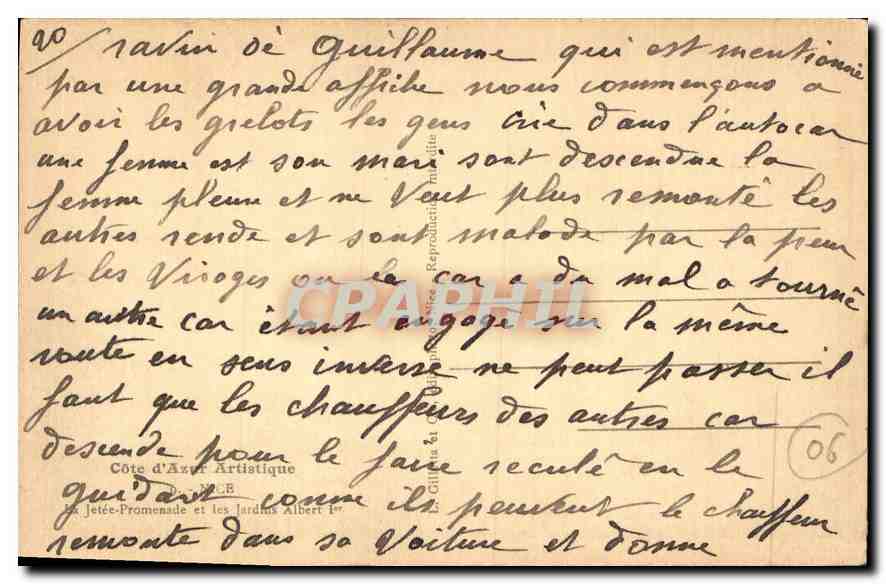 20/ ravin dé Guillaume qui est mentionné
par une grande affiche nous commençons a
avoir les grelots les gens crie dans l'autocar
une femme est son mari sont descendue la
femme pleure et ne veut plus remonté les
autres rende et sont malade par la peur
et les Virages ou le car a du mal a tourné
un autre car étant engagé sur la même
route en sens inverse ne peut passer il
faut que les chauffeurs des autres car
descende pour le faire reculé en le
guidant comme ils peuvent le chauffeur
remonte dans sa Voiture et donne
06
Côte d'Azur Artistique
NICE
La Jetée-Promenade et les Jardins Albert Ier
Reproduction interdite
CPAPHIL